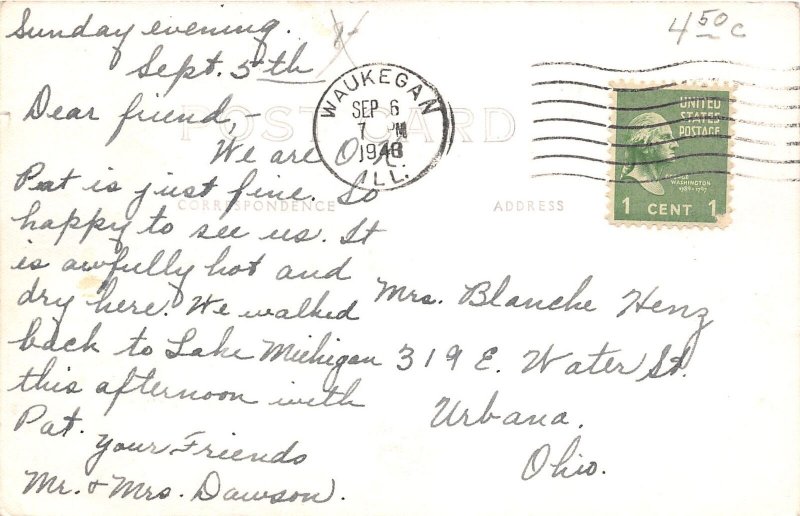 Sunday evening.
Sept. 5th
450c
Dear friend,-
We are O.K.
Pat is just fine. So
happy to see us. It
is awfully hot and
dry here. We walked
back to Lake Michigan
this afternoon with
Pat.
Your Friends
Mr. & Mrs. Dawson.
POST CARD
CORRESPONDENCE
ADDRESS
WAUKEGAN
SEP 6
7 PM
1948
ILL.
UNITED
STATES
POSTAGE
WASHINGTON
1789-1797
1 CENT 1
Mrs. Blanche Henz
319 E. Water St.
Urbana.
Ohio.